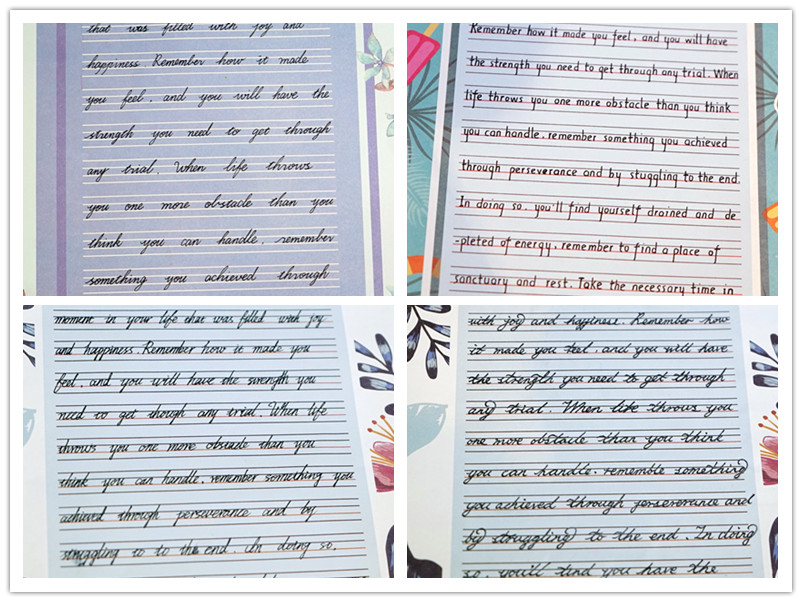 that was filled with joy and
happiness. Remember how it made
you feel, and you will have the
strength you need to get through
any trial. When life throws
you one more obstacle than you
think you can handle, remember
something you achieved through
Remember how it made you feel, and you will have
the strength you need to get through any trial. When
life throws you one more obstacle than you think
you can handle, remember something you achieved
through perseverance and by stuggling to the end.
In doing so, you'll find yourself drained and de
-pleted of energy, remember to find a place of
sanctuary and rest. Take the necessary time in
moment in your life that was filled with joy
and happiness. Remember how it made you
feel, and you will have the strength you
need to get though any trial. When life
throws you one more obstacle than you
think you can handle, remember something you
achieved through perseverance and by
struggling to to the end. In doing so,
with joy and happiness. Remember how
it made you feel, and you will have
the strength you need to get through
any trial. When life throws you
one more obstacle than you think
you can handle, remember something
you achieved through perseverance and
by struggling to the end. In doing
so, you'll find you have the